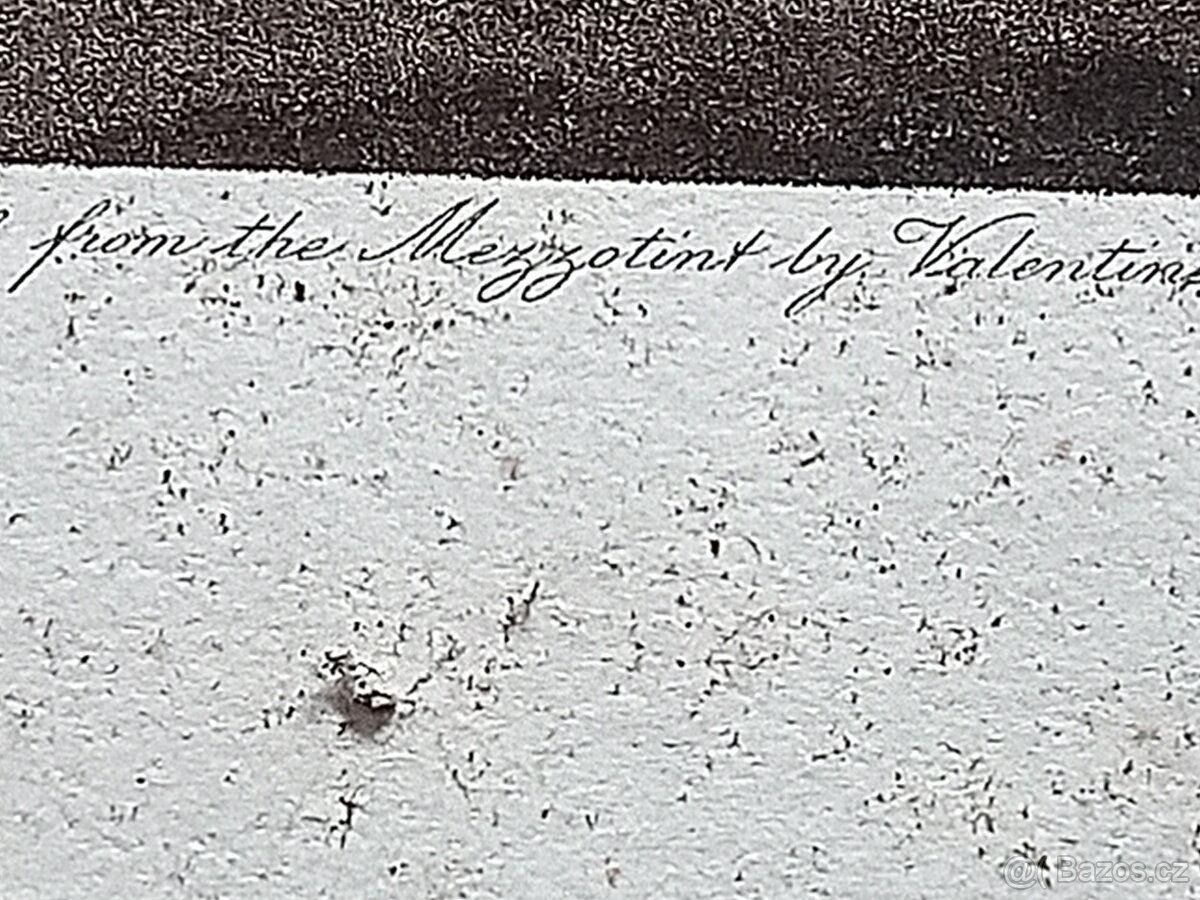 from the Mezzotint by Valentin
@ Bazos.cz